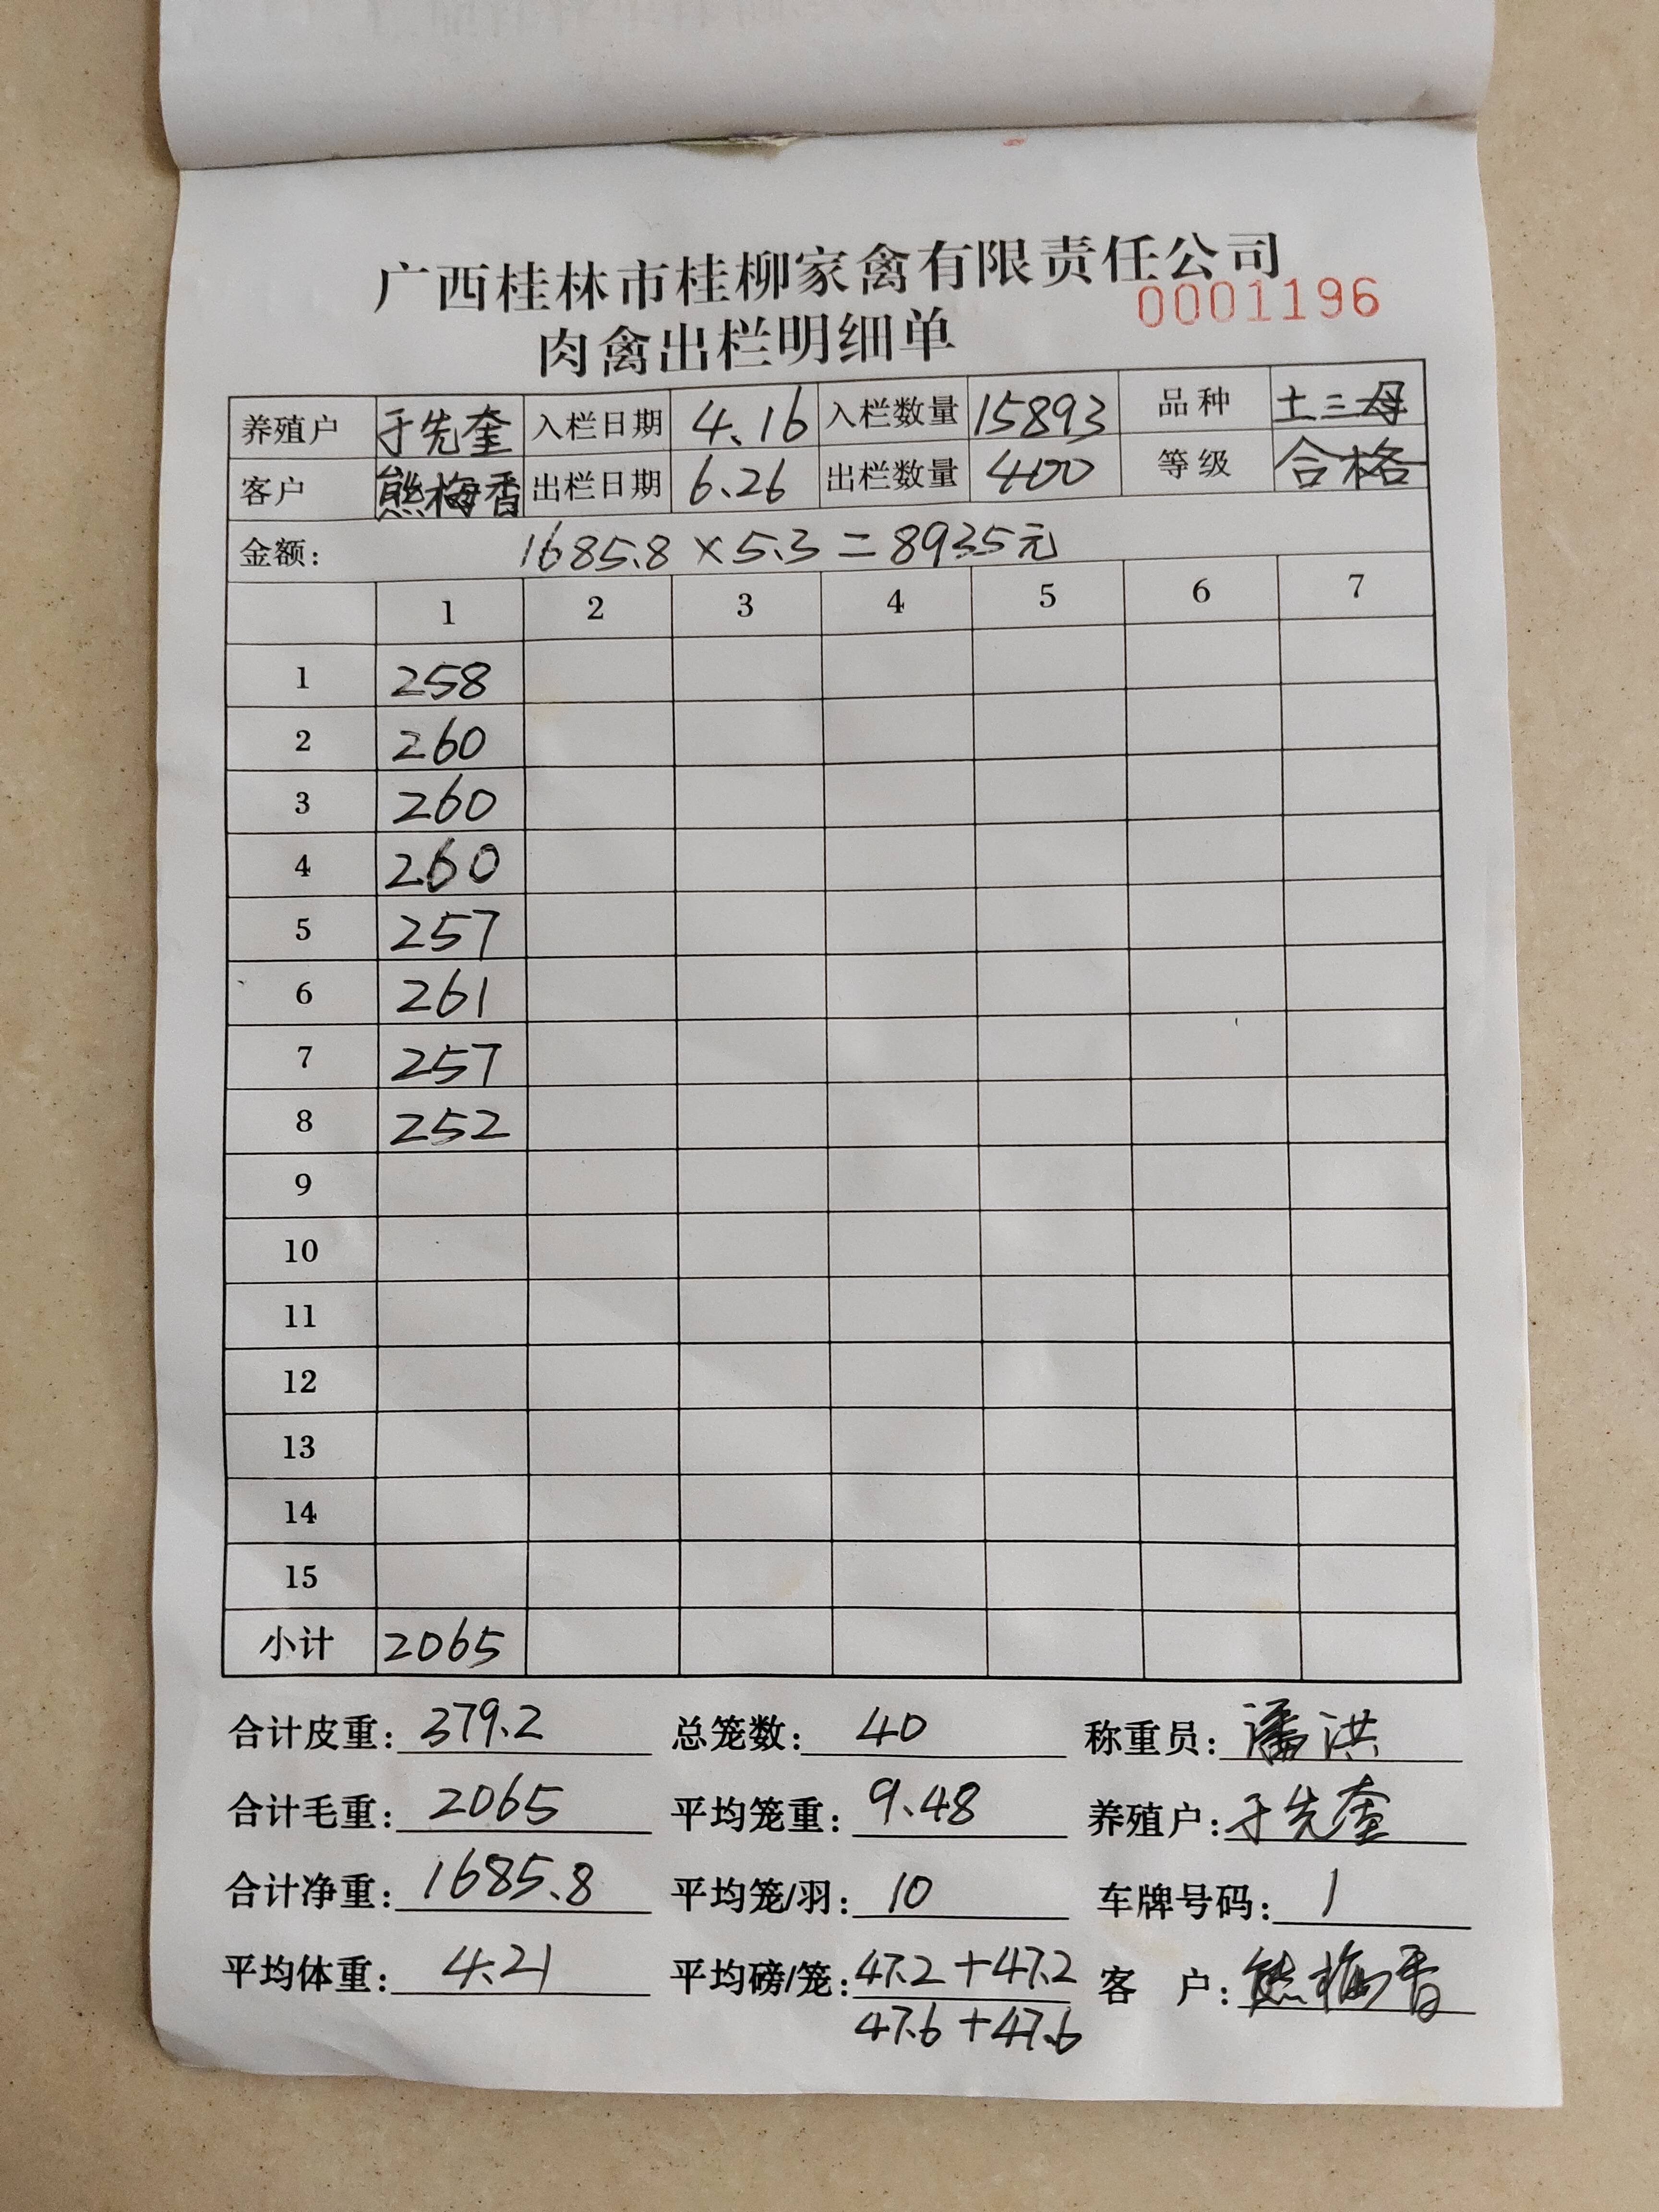 广西桂林市桂柳家禽有限责任公司
0001196
肉禽出栏明细单
养殖户 于先奎 入栏日期 4.16 入栏数量 15893 品种 土三母
客户 熊梅香 出栏日期 6.26 出栏数量 400 等级 合格
金额: 1685.8×5.3=8935元
1 2 3 4 5 6 7
1 258
2 260
3 260
4 260
5 257
6 261
7 257
8 252
9
10
11
12
13
14
15
小计 2065
合计皮重: 379.2 总笼数: 40 称重员: 潘洪
合计毛重: 2065 平均笼重: 9.48 养殖户: 于先奎
合计净重: 1685.8 平均笼/羽: 10 车牌号码: 1
平均体重: 4.21 平均磅/笼: 47.2+47.2 客户: 熊梅香
47.6+47.6